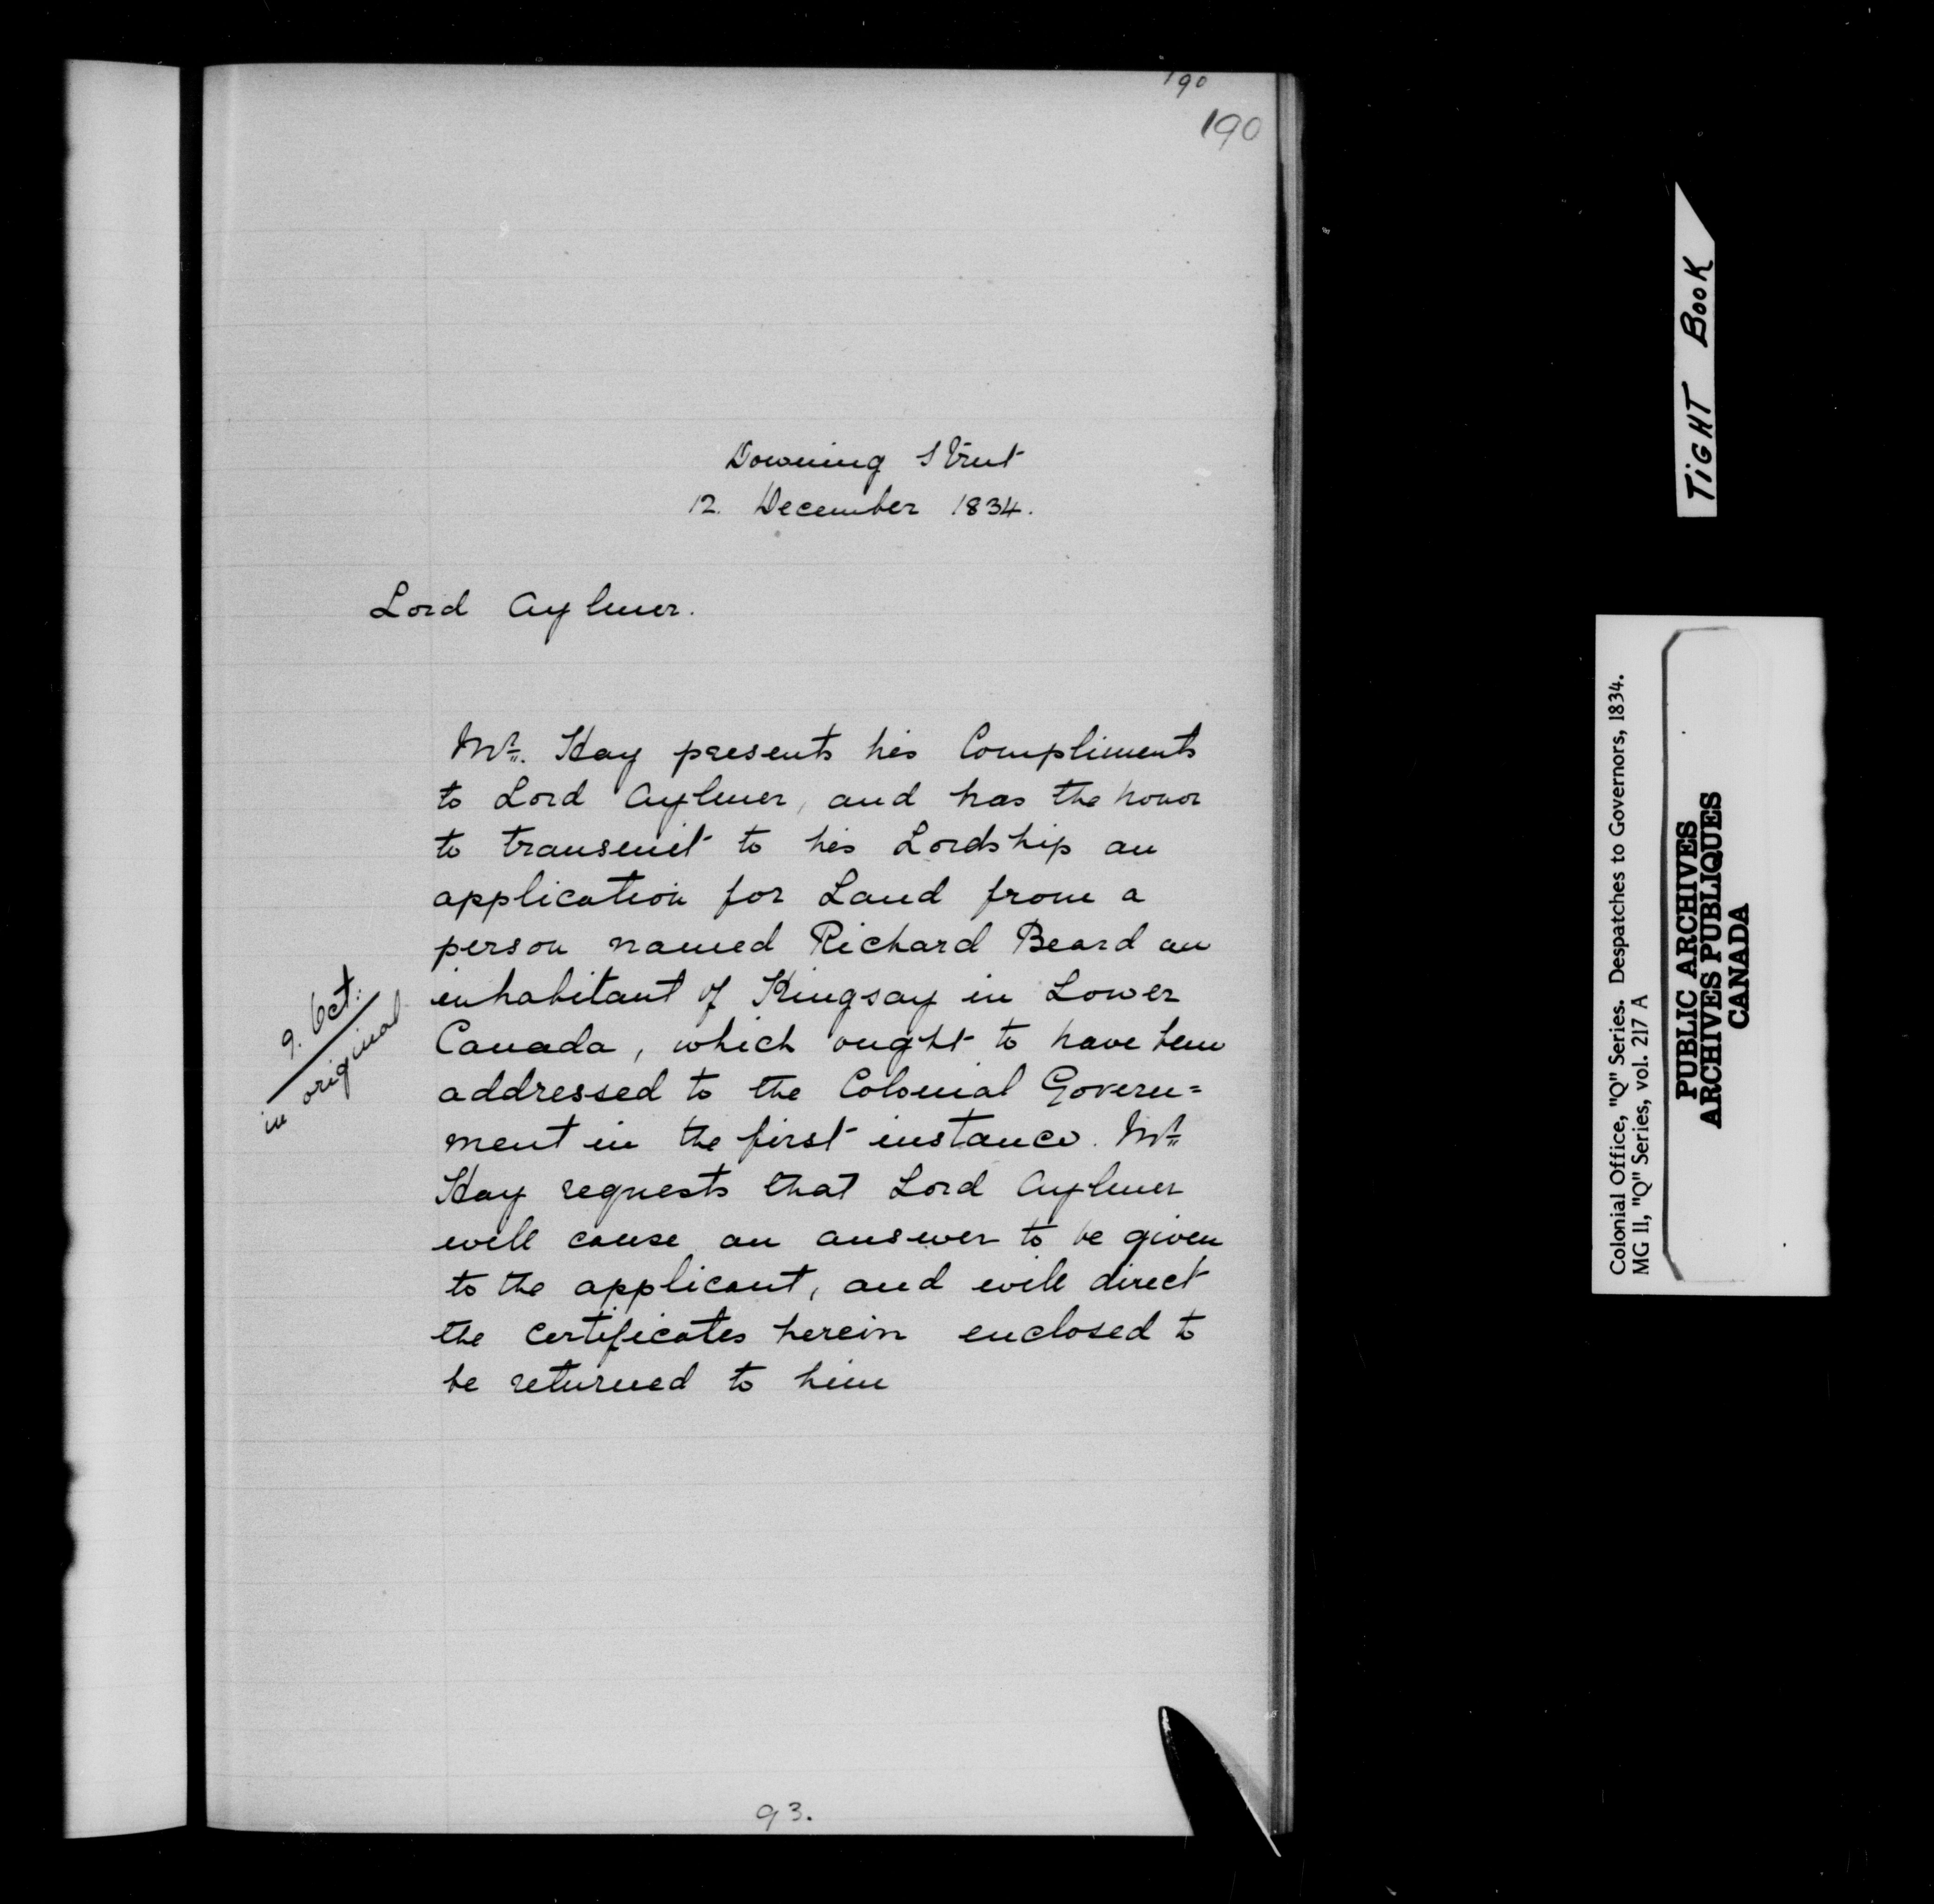 190
190
Downing Street
12. December 1834.
Lord Aylmer.
Mr. Hay presents his Compliments
to Lord Aylmer, and has the honor
to transmit to his Lordship an
application for Land from a
person named Richard Beard an
inhabitant of Kingsay in Lower
Canada, which ought to have been
addressed to the Colonial Govern=
ment in the first instance. Mr
Hay requests that Lord Aylmer
will cause an answer to be given
to the applicant, and will direct
the certificates herein enclosed to
be returned to him
9. Oct:
in original
93.
TIGHT BOOK
Colonial Office, "Q" Series. Despatches to Governors, 1834.
MG 11, "Q" Series, vol. 217 A
PUBLIC ARCHIVES
ARCHIVES PUBLIQUES
CANADA